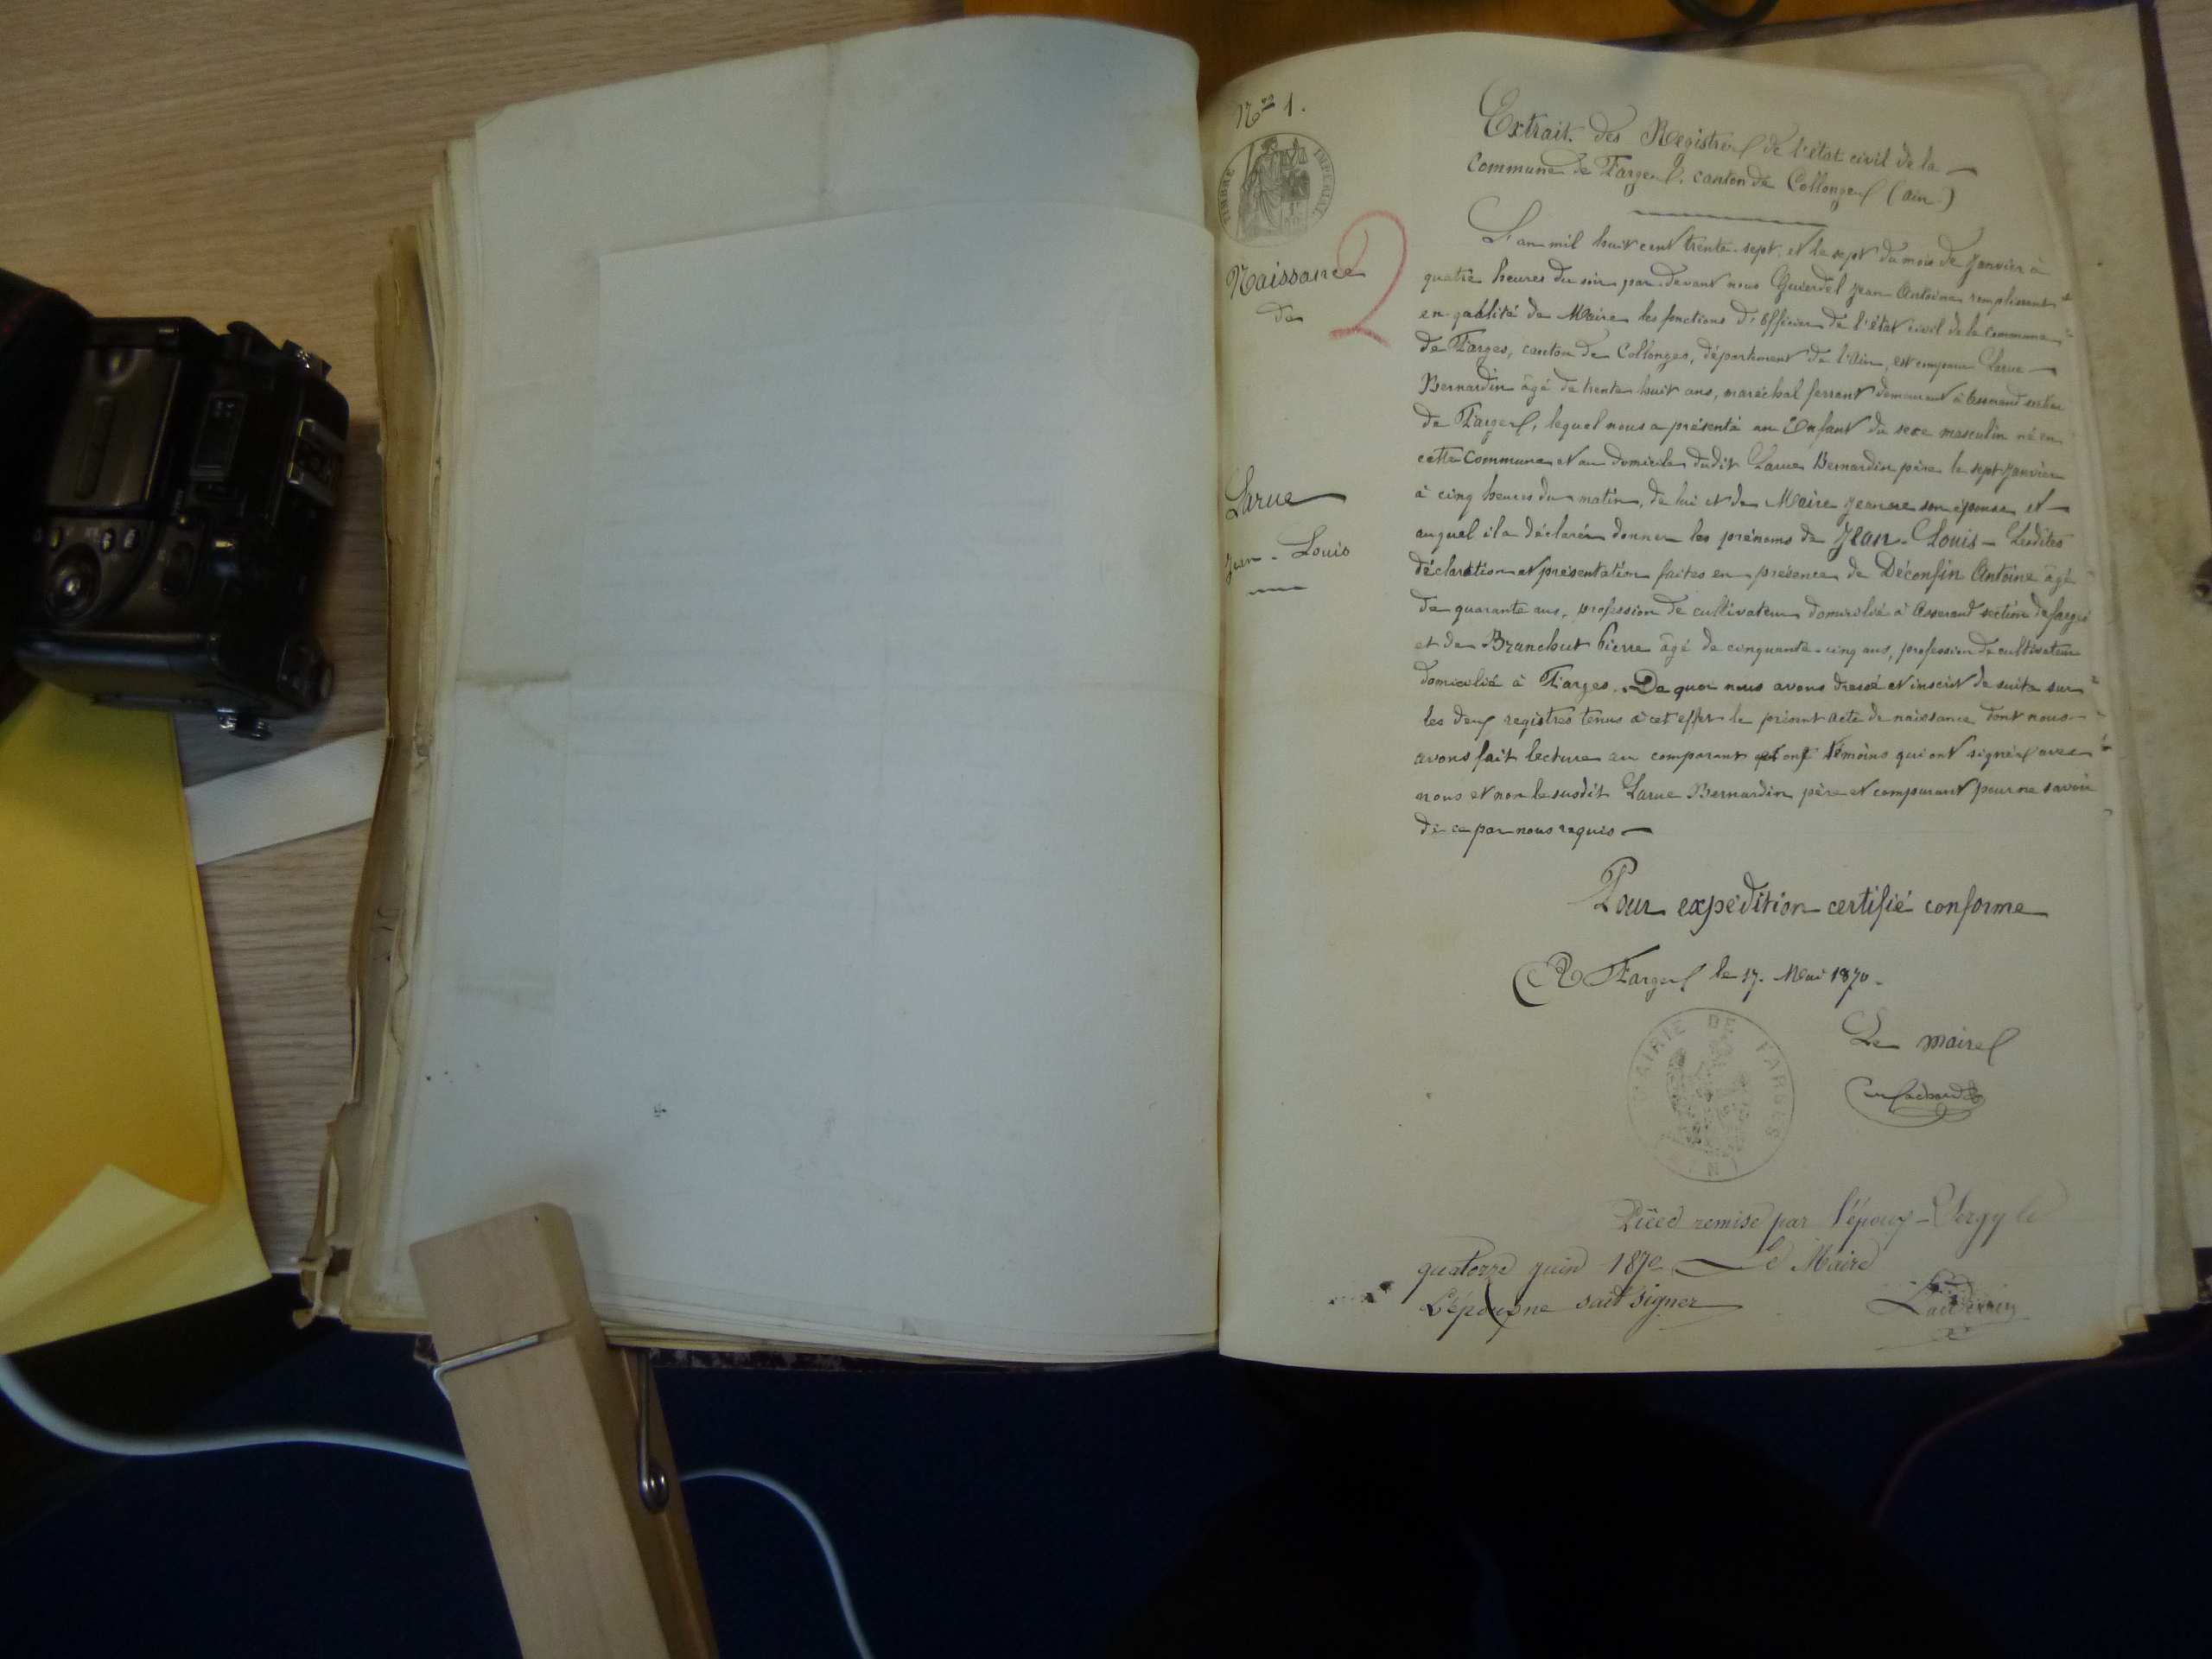 Nos 1.
TIMBRE IMPERIAL
2
Naissance
de
Larue
Jean-Louis
Extrait des Registres de l'état civil de la
Commune de Farges, canton de Collonges (Ain)
L'an mil huit cent trente-sept, et le sept du mois de Janvier à
quatre heures du soir par devant nous Jean Antoine remplissant
en qualité de Maire les fonctions d'officier de l'état civil de la commune
de Farges, canton de Collonges, département de l'Ain, est comparu Larue
Bernardin âgé de trente huit ans, maréchal ferrant demeurant à Asserand section
de Farges, lequel nous a présenté un Enfant du sexe masculin né en
cette Commune et au domicile dudit Larue Bernardin père le sept Janvier
à cinq heures du matin, de lui et de Maire Jeanne son épouse et
auquel il a déclaré donner les prénoms de Jean-Louis - Lesdites
déclaration et présentation faites en présence de Déconfin Antoine âgé
de quarante ans, profession de cultivateur domicilié à Asserand section de farges
et de Branchut Pierre âgé de cinquante-cinq ans, profession de cultivateur
domicilié à Farges. De quoi nous avons dressé et inscrit de suite sur
les deux registres tenus à cet effet le présent acte de naissance dont nous
avons fait lecture au comparant et témoins qui ont signés avec
nous et non le susdit Larue Bernardin père et comparant pour ne savoir
de ce par nous requis
Pour expédition certifié conforme
A Farges le 17. Mai 1870.
Le maire
MAIRIE DE FARGES
Pièce remise par l'époux - Sergy le
quatorze juin 1870 Le Maire
L'épouse sait signer